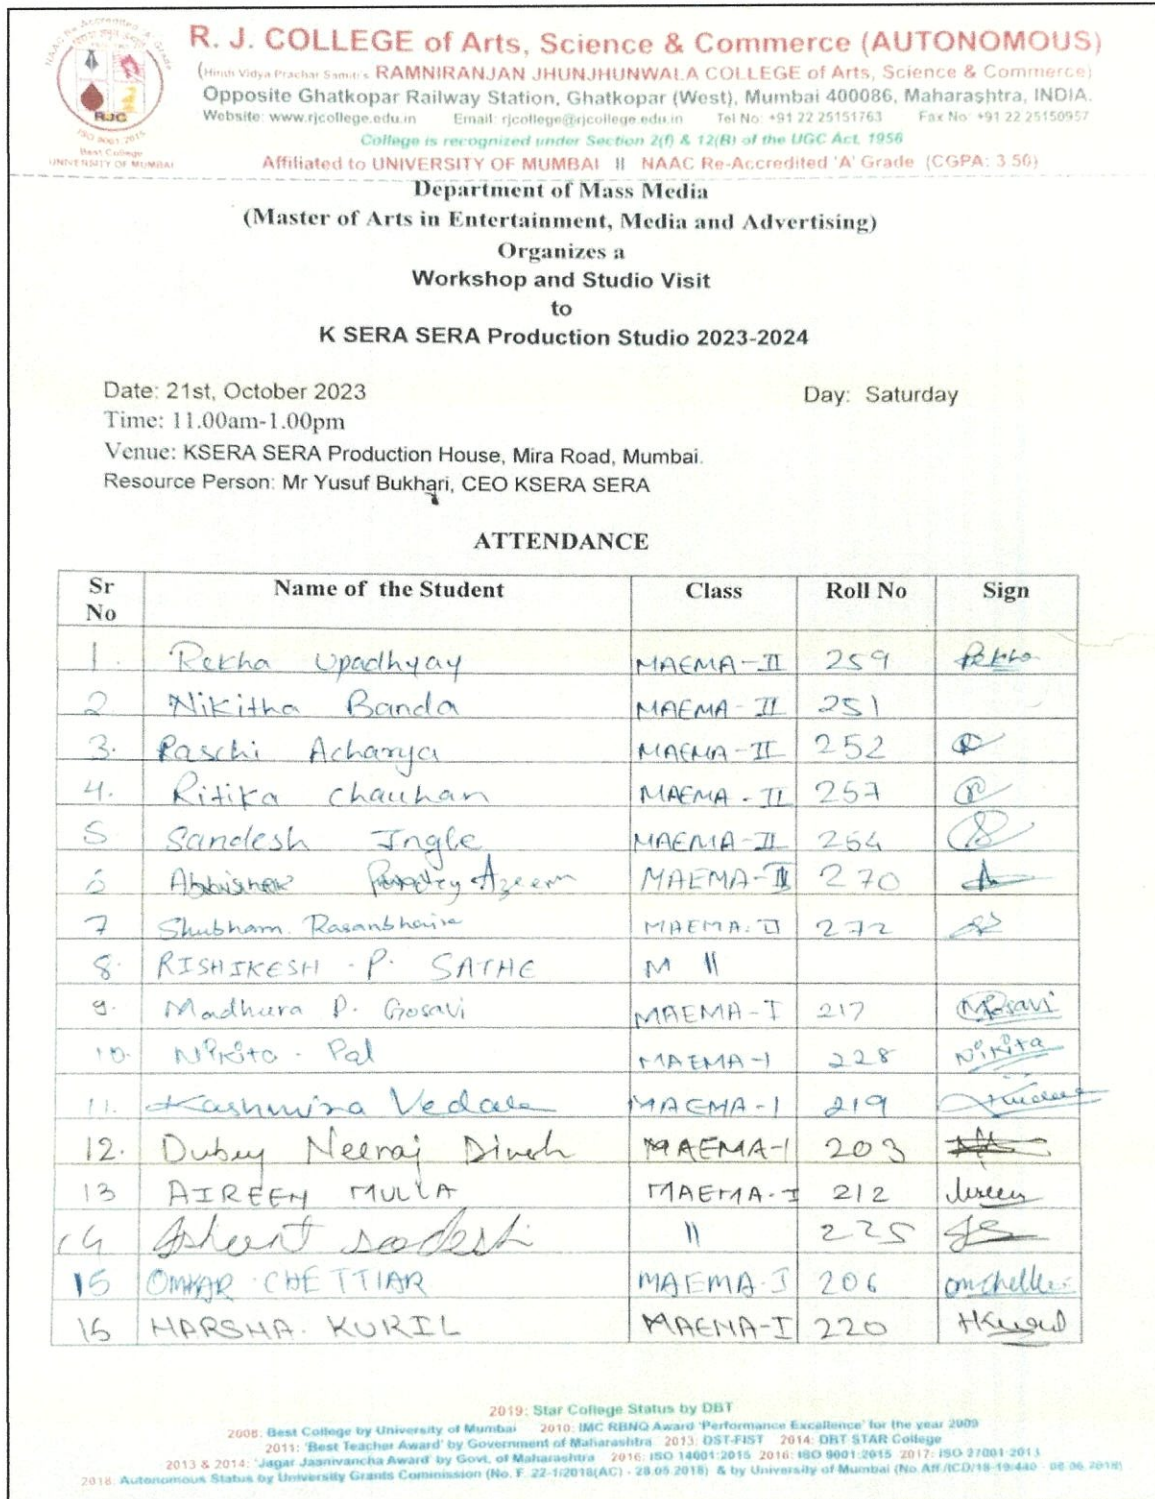 NAAC Re-Accredited 'A' Grade
RJC
ISO 9001:2015
Best College
UNIVERSITY OF MUMBAI
R. J. COLLEGE of Arts, Science & Commerce (AUTONOMOUS)
(Hindi Vidya Prachar Samiti's RAMNIRANJAN JHUNJHUNWALA COLLEGE of Arts, Science & Commerce)
Opposite Ghatkopar Railway Station, Ghatkopar (West), Mumbai 400086, Maharashtra, INDIA.
Website: www.rjcollege.edu.in Email: rjcollege@rjcollege.edu.in Tel No: +91 22 25151763 Fax No: +91 22 25150957
College is recognized under Section 2(f) & 12(B) of the UGC Act, 1956
Affiliated to UNIVERSITY OF MUMBAI II NAAC Re-Accredited 'A' Grade (CGPA: 3.50)
Department of Mass Media
(Master of Arts in Entertainment, Media and Advertising)
Organizes a
Workshop and Studio Visit
to
K SERA SERA Production Studio 2023-2024
Date: 21st, October 2023 Day: Saturday
Time: 11.00am-1.00pm
Venue: KSERA SERA Production House, Mira Road, Mumbai.
Resource Person: Mr Yusuf Bukhari, CEO KSERA SERA
ATTENDANCE
Sr No Name of the Student Class Roll No Sign
1. Rekha Upadhyay MAEMA-II 259 Rekha
2 Nikitha Banda MAEMA-II 251
3. Raschi Acharya MAEMA-II 252
4. Ritika Chauhan MAEMA-II 257
5 Sandesh Ingle MAEMA-II 264
6 Abhishek Azeem MAEMA-II 270
7 Shubham. MAEMA-II 272
8. RISHIKESH . P. SATHE M II
9. Madhura P. Gosavi MAEMA-I 217 MGosavi
10. Nikita . Pal MAEMA-I 228 Nikita
11. Kashmira Vedale MAEMA-I 219
12. Dubey Neeraj Dinesh MAEMA-I 203
13 AIREEN MULLA MAEMA-I 212
14 II 225
15 OMKAR CHETTIAR MAEMA-I 206
16 HARSHA. KURIL MAEMA-I 220 HKuril
2019: Star College Status by DBT
2008: Best College by University of Mumbai 2010: IMC RBNQ Award 'Performance Excellence' for the year 2009
2011: 'Best Teacher Award' by Government of Maharashtra 2013: DST-FIST 2014: DBT STAR College
2013 & 2014: 'Jagar Jaanivancha Award' by Govt. of Maharashtra 2016: ISO 14001:2015 2016: ISO 9001:2015 2017: ISO 27001:2013
2018: Autonomous Status by University Grants Commission (No. F. 22-1/2018(AC) - 28.05 2018) & by University of Mumbai (No.Aff./ICD/18-19/440 - 08.06.2018)